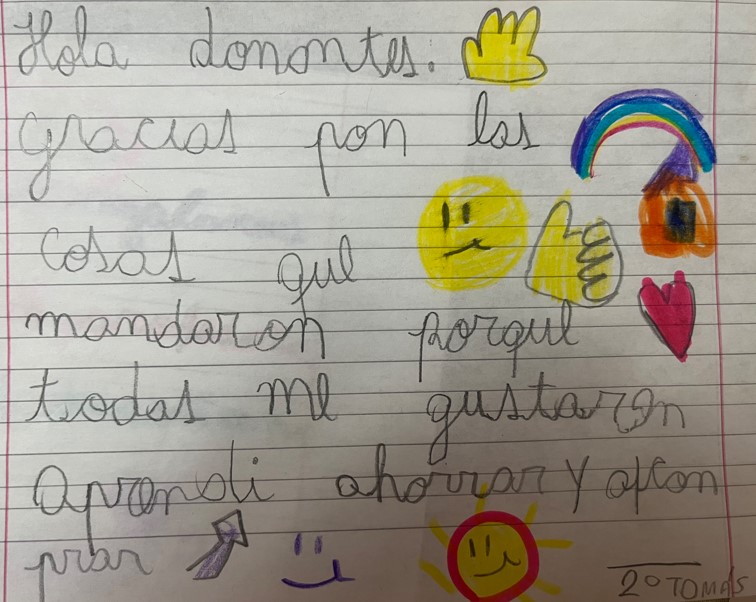 Hola donontes.
gracias pon los
Cosas que
mandaron porque
todas me gustaron
aprendi ahorrar y a con
prar
2º TOMAS